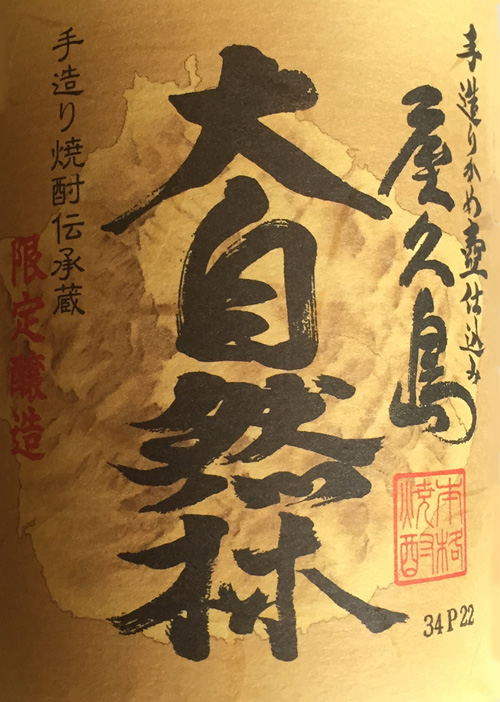 手造りかめ壺仕込み
屋久島
本格
焼酎
34P22
大自然林
手造り焼酎伝承蔵
限定醸造